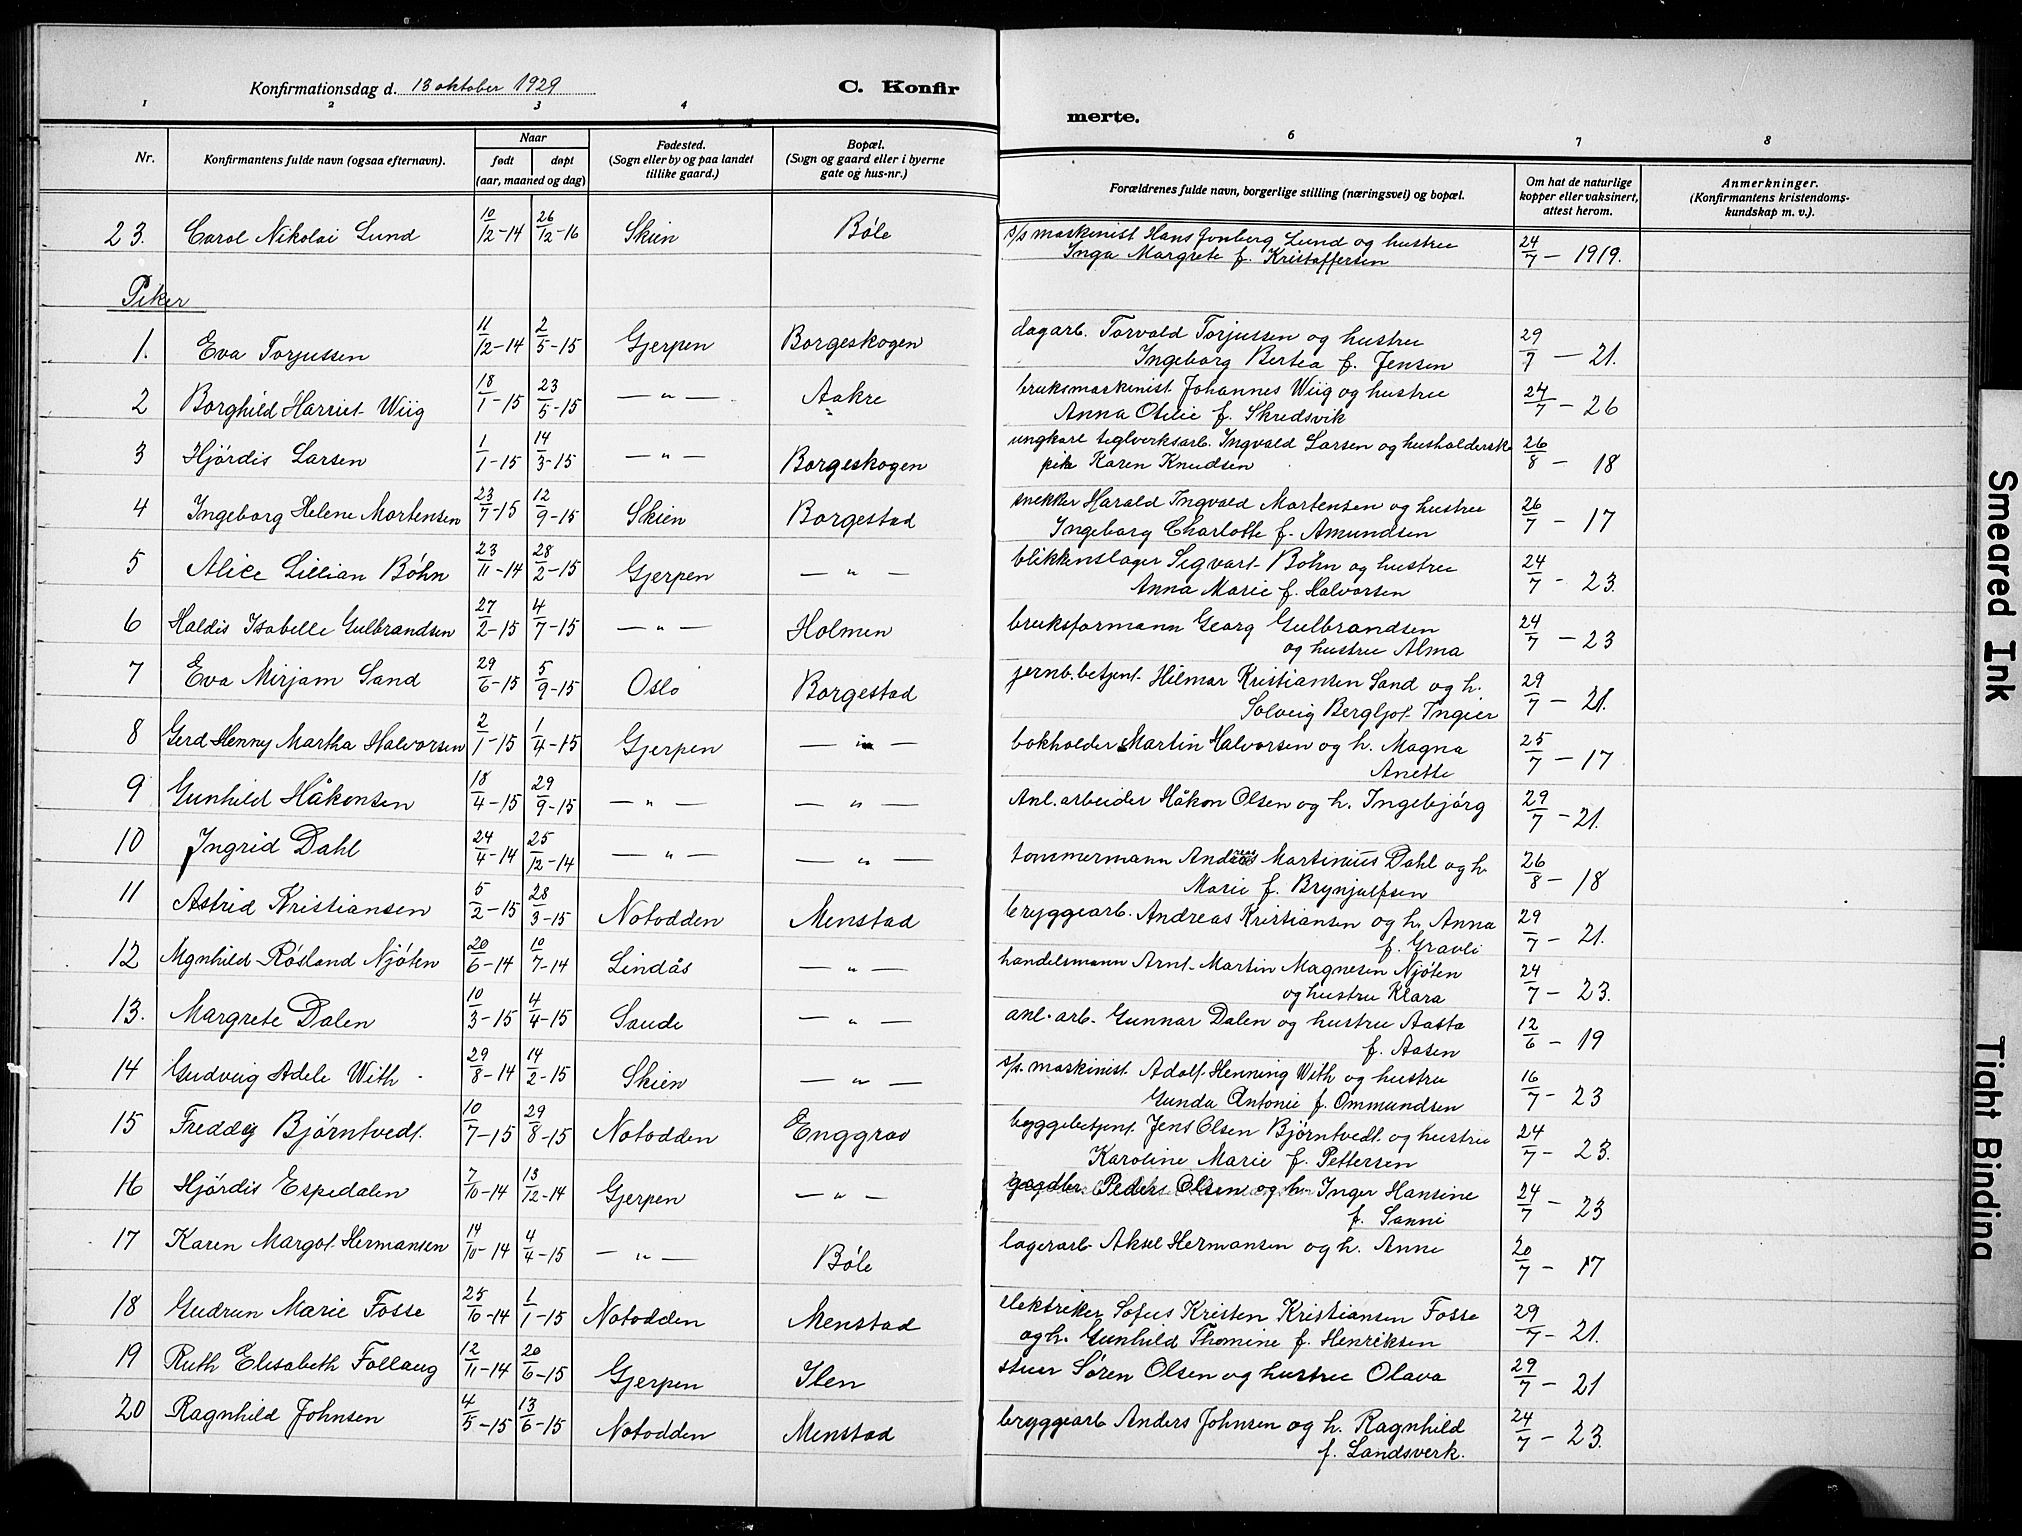 Konfirmationsdag d. 13 oktober 1929
C. Konfir
merte.
1 2 3 4 6 7 8
Nr.
Konfirmantens fulde navn (ogsaa efternavn).
Naar
født døpt
(aar, maaned og dag)
Fødested.
(Sogn eller by og paa landet
tillike gaard.)
Bopæl.
(Sogn og gaard eller i byerne
gate og hus-nr.)
Forældrenes fulde navn, borgerlige stilling (næringsvei) og bopæl.
Om hat de naturlige
kopper eller vaksinert,
attest herom.
Anmerkninger.
(Konfirmantens kristendoms-
kundskap m. v.).
23. Carol Nikolai Lund 10/12-14 26/12-16 Skien Bøle s/s maskinist Hans Lund og hustru 24/7 - 1919.
Inga Margrete f. Kristoffersen
Piker
1. Eva Torjussen 11/12-14 2/5-15 Gjerpen Borgeskogen dagarb. Torvald Torjussen og hustru 29/7 - 21.
Ingeborg Bertea f. Jensen
2 Borghild Harriet Wiig 18/1-15 23/5-15 — " — Aakre bruksmaskinist Johannes Wiig og hustru 24/7 - 26
Anna Otilie f. Skredsvik
3 Hjørdis Larsen 1/1-15 14/3-15 — " — Borgeskogen ungkarl teglverksarb. Ingvald Larsen og husholderske 26/8 - 18
pike Karen Knudsen
4 Ingeborg Helene Mortensen 23/7-15 12/9-15 Skien Borgestad snekker Harald Ingvald Mortensen og hustru 26/7 - 17
Ingeborg Charlotte f. Amundsen
5 Alice Lillian Bøhn 23/11-14 28/2-15 Gjerpen — " — blikkenslager Sigvart Bøhn og hustru 24/7 - 23.
Anna Marie f. Halvorsen
6 Haldis Isabelle Gulbrandsen 27/2-15 4/7-15 — " — Holmen bruksformann Georg Gulbrandsen 24/7 - 23
og hustru Alma
7 Eva Mirjam Sand 29/6-15 5/9-15 Oslo Borgestad jernb.betjent Hilmar Kristiansen Sand og h. 29/7 - 21.
Solveig Bergljot Ingier
8 Gerd Henny Martha Halvorsen 2/1-15 1/4-15 Gjerpen — " — bokholder Martin Halvorsen og h. Magna 25/7 - 17
Anette
9 Gunhild Håkonsen 18/4-15 29/9-15 — " — — " — Anl. arbeider Håkon Olsen og h. Ingebjørg 29/7 - 21.
10 Ingrid Dahl 24/4-14 25/12-14 — " — — " — tømmermann Andreas Martinius Dahl og h. 26/8 - 18
Marie f. Brynjulfsen
11 Astrid Kristiansen 5/2-15 28/3-15 Notodden Menstad bryggearb. Andreas Kristiansen og h. Anna 29/7 - 21.
f. Gravli
12 Mgnhild Røsland Njøten 20/6-14 10/7-14 Lindås — " — handelsmann Arnt Martin Magnesen Njøten 24/7 - 23.
og hustru Klara
13. Margrete Dalen 10/3-15 4/4-15 Saude — " — anl. arb. Gunnar Dalen og hustru Aasta 12/6 - 19
f. Aasen
14 Gudveig Adele With 29/8-14 14/2-15 Skien — " — s/s. maskinist Adolf Henning With og hustru 16/7 - 23
Gunda Antonie f. Ommundsen
15 Freddy Bjørntvedt 10/7-15 29/8-15 Notodden Enggrav byggebetjent Jens Olsen Bjørntvedt og hustru 24/7 - 23.
Karoline Marie f. Pettersen
16 Hjørdis Espedalen 7/10-14 13/12-14 Gjerpen — " — gaardbr. Peder Olsen og h. Inger Hansine 24/7 - 23
f. Sanni
17 Karen Margot Hermansen 14/10-14 4/4-15 — " — Bøle lagerarb Aksel Hermansen og h. Anne 20/7 - 17
18 Gudrun Marie Fosse 25/10-14 1/1-15 Notodden Menstad elektriker Sofus Kristen Kristiansen Fosse 29/7 - 21.
og h. Gunhild Thomine f. Henriksen
19 Ruth Elisabeth Follaug 12/11-14 20/6-15 Gjerpen Ilen stuer Søren Olsen og hustru Olava 29/7 - 21
20 Ragnhild Johnsen 4/5-15 13/6-15 Notodden Menstad bryggearb Anders Johnsen og h. Ragnhild 24/7 - 23.
f. Landsverk.
Smeared Ink
Tight Binding